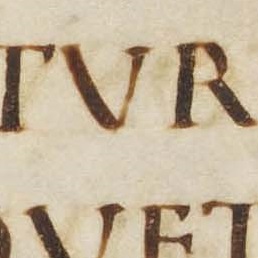 TVR
VET